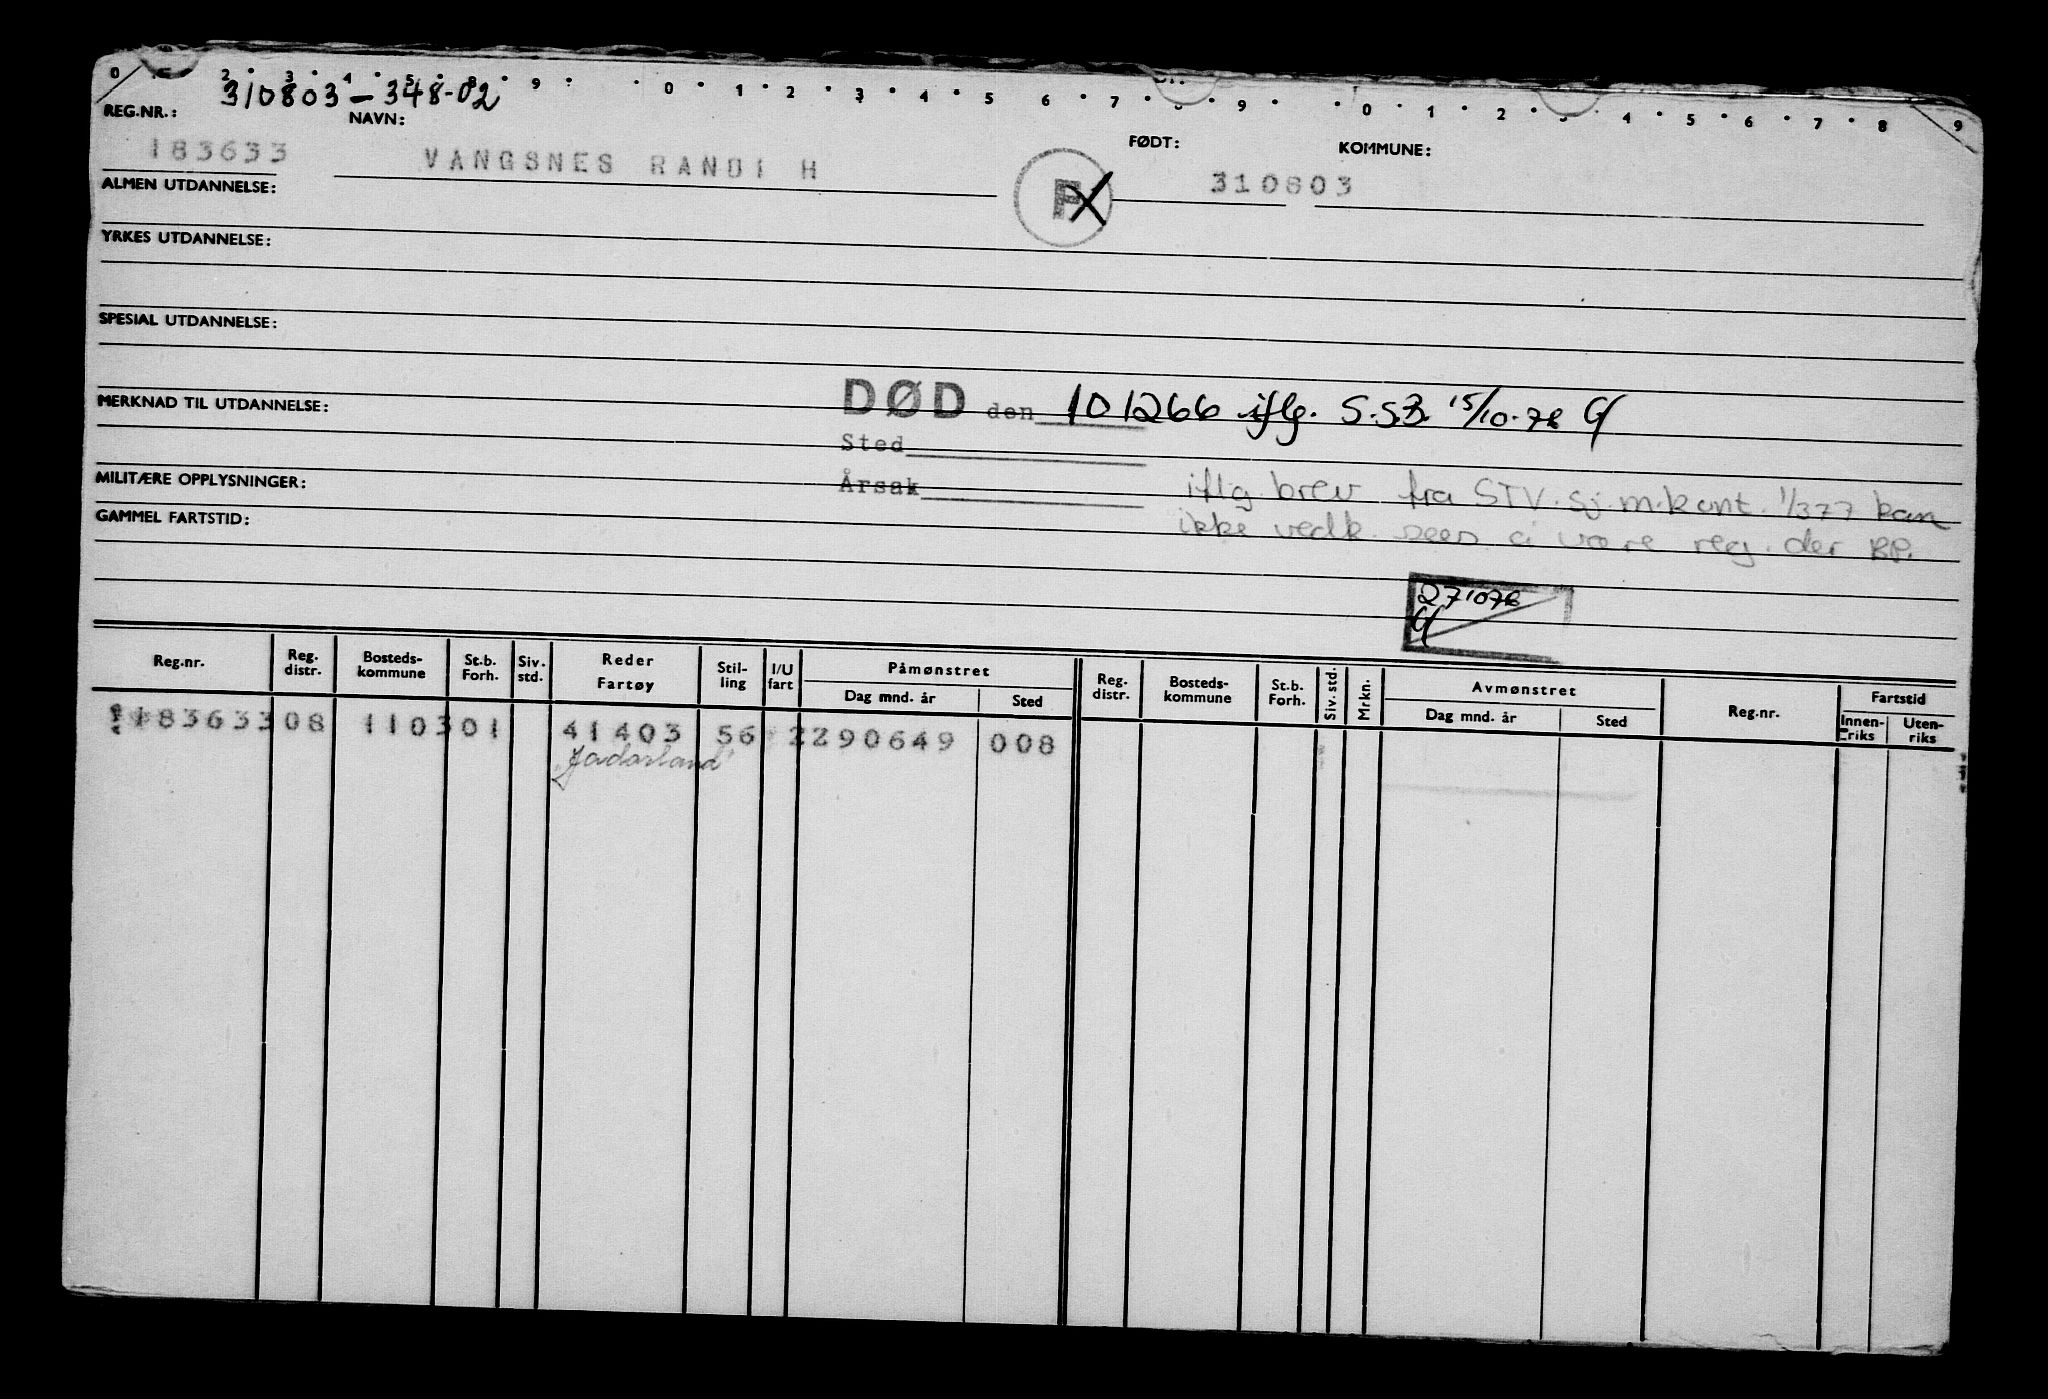 0 2 3 4 5 8 9 0 1 2 3 4 5 6 7 9 0 1 2 4 5 6 7 8 9
310803-348-02
REG.NR.: NAVN: FØDT: KOMMUNE:
183633 VANGSNES RANDI H F 310803
ALMEN UTDANNELSE:
YRKES UTDANNELSE:
SPESIAL UTDANNELSE:
MERKNAD TIL UTDANNELSE: DØD den 101266 iflg. S.S.B. 15/10-76
Sted
MILITÆRE OPPLYSNINGER: Årsak iflg. brev fra STV. sj.m.kont. 1/377 kan
GAMMEL FARTSTID: ikke vedk. sees å være reg. der BP.
271076
Reg.nr. Reg. distr. Bosteds- kommune St.b. Forh. Siv. std. Reder Fartøy Stil- ling I/U fart Påmønstret Dag mnd. år Sted Reg. distr. Bosteds- kommune St.b. Forh. Siv. std. Mrkn. Avmønstret Dag mnd. år Sted Reg.nr. Fartstid Innen- riks Uten- riks
183633 08 1103 01 41403 56 2 290649 008
Jadarland